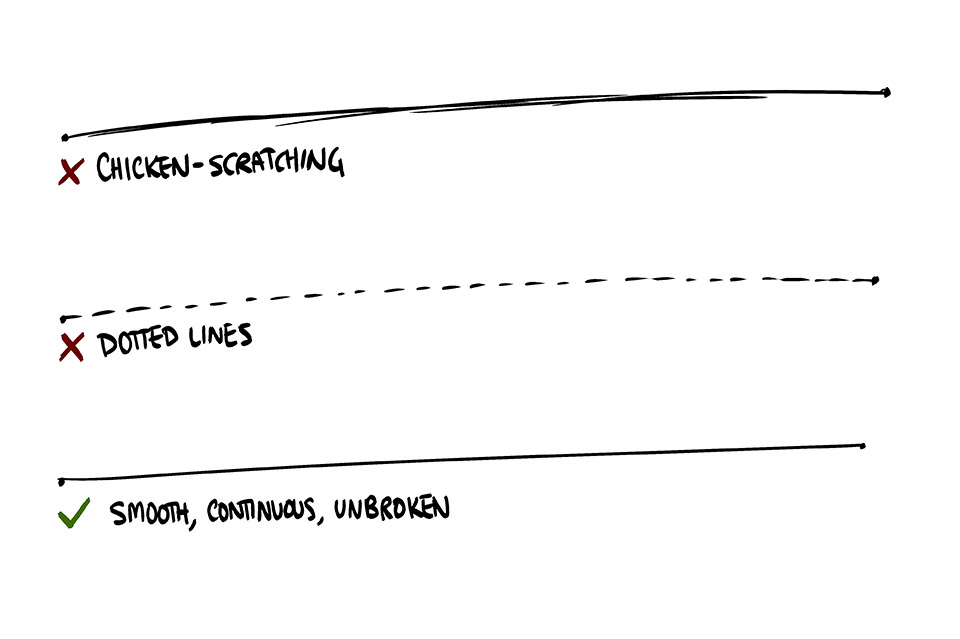 CHICKEN-SCRATCHING
DOTTED LINES
SMOOTH, CONTINUOUS, UNBROKEN